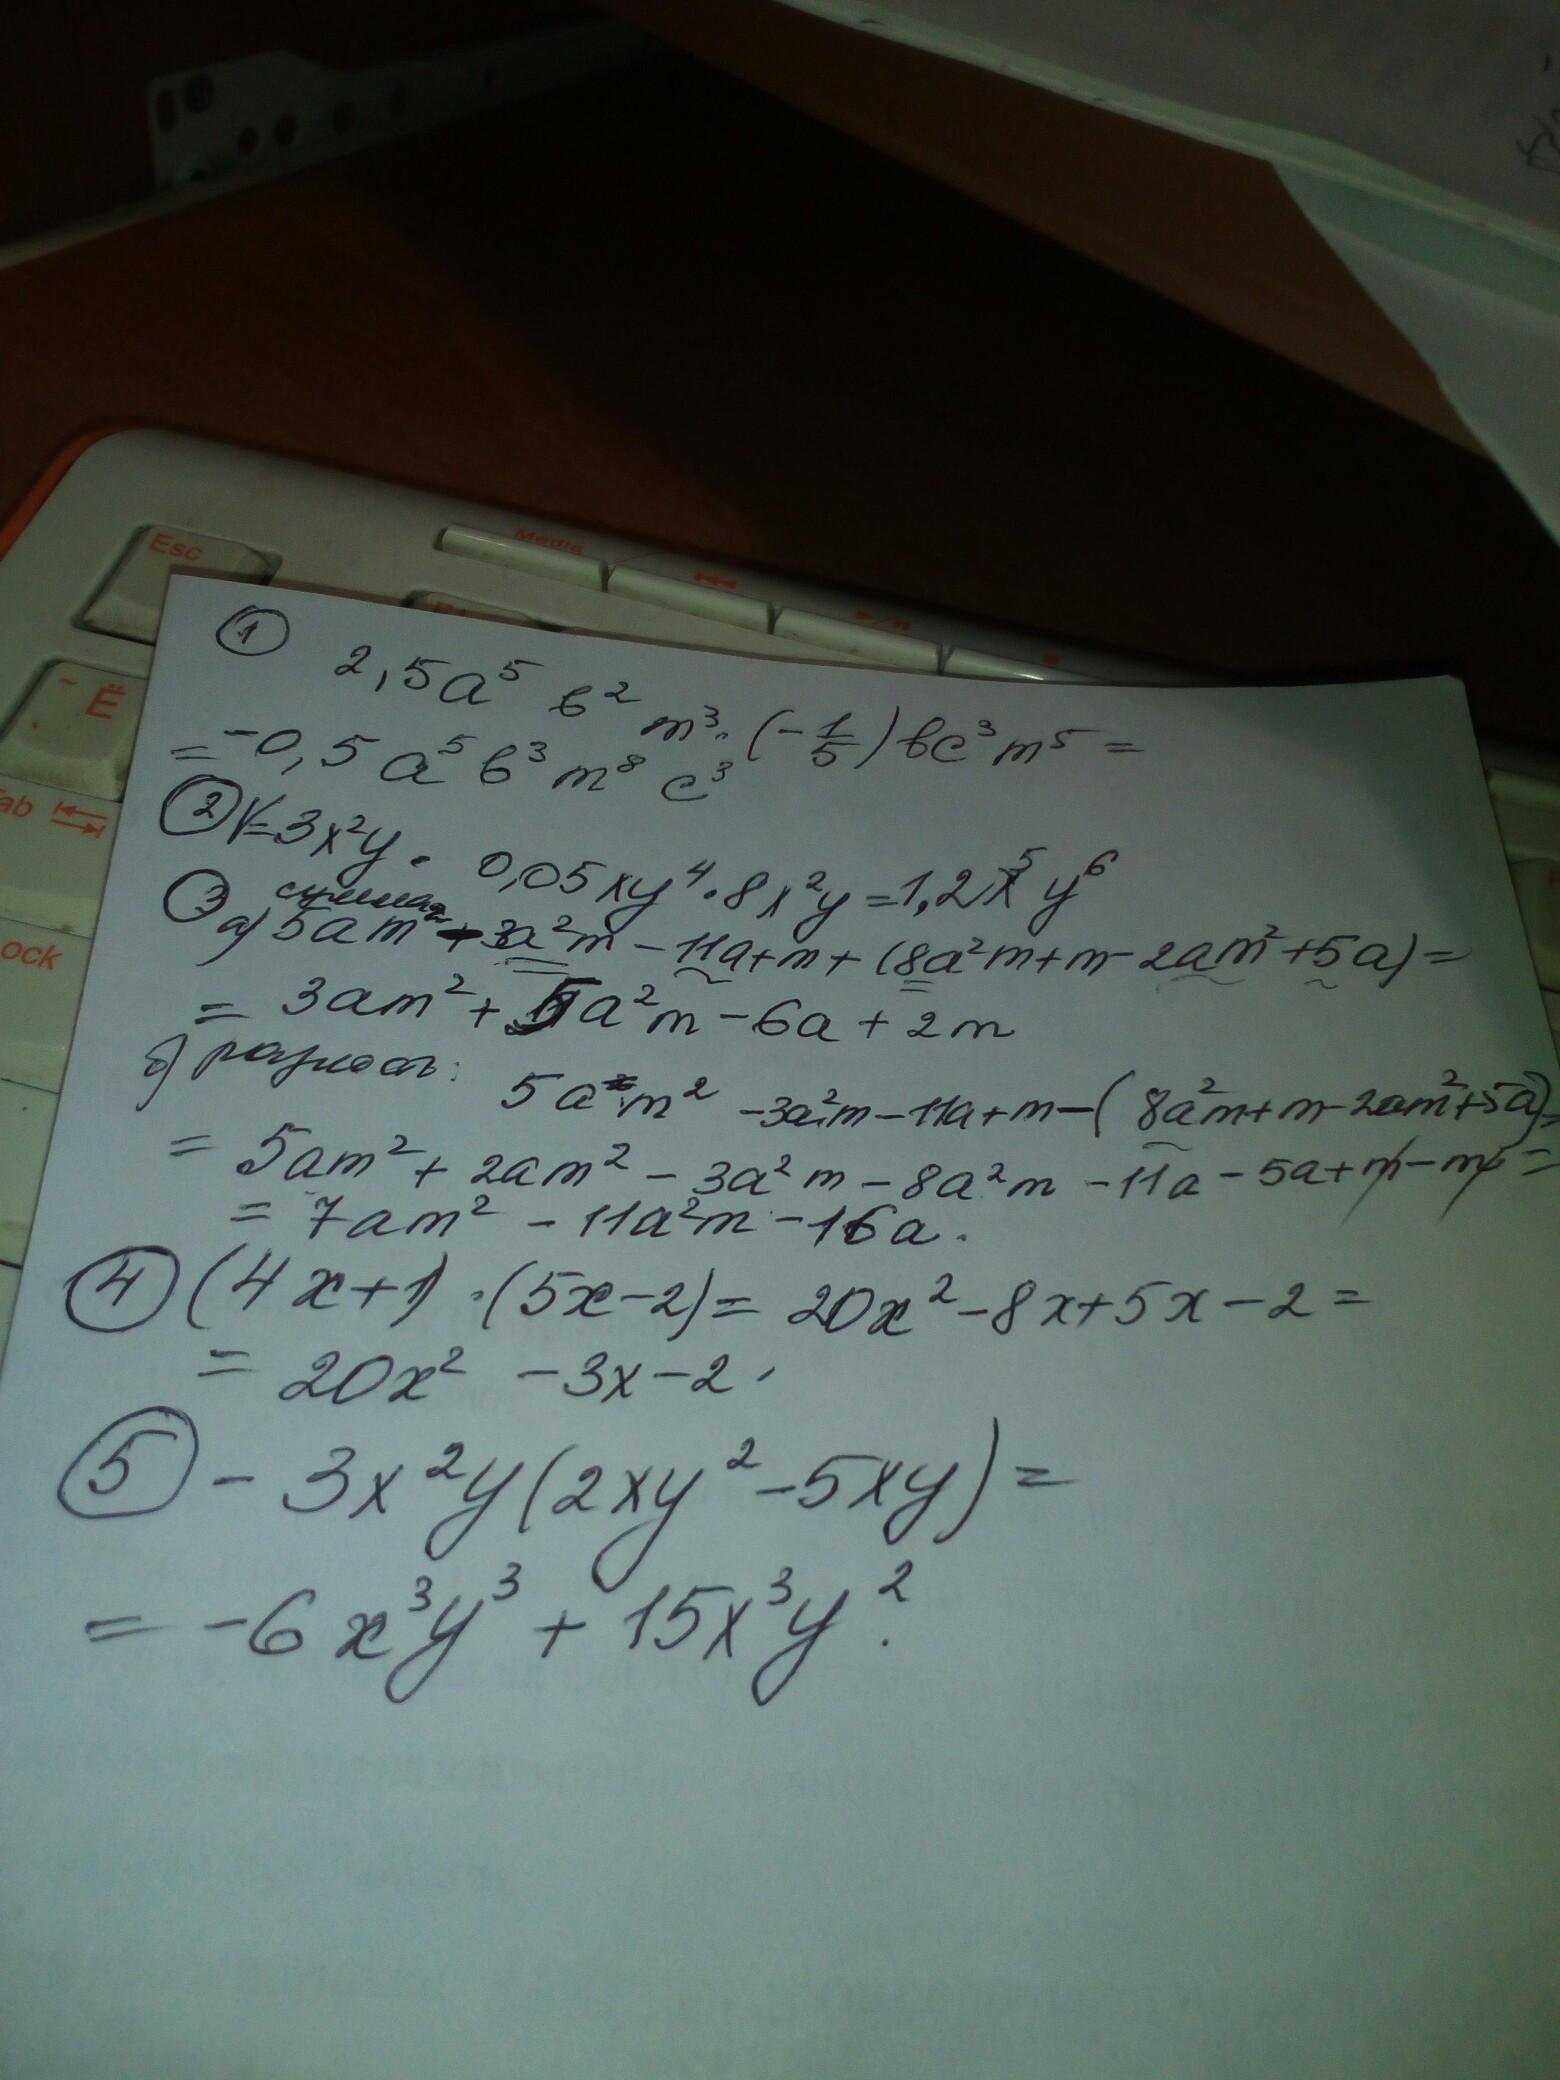 Esc
Media
Ё
Tab
Lock
①
2,5a⁵ в² m³·(-1/5)вc³m⁵ =
= -0,5a⁵в³m⁸c³
② V=3x²y · 0,05xy⁴·8x²y=1,2x⁵y⁶
③ сумма
а) 5am² - 3a²m - 11a+m + (8a²m+m-2am²+5a) =
= 3am² + 5a²m - 6a + 2m
б) разность: 5am² -3a²m-11a+m-(8a²m+m-2am²+5a)=
= 5am² + 2am² - 3a²m - 8a²m - 11a - 5a+m-m =
= 7am² - 11a²m - 16a.
④ (4x+1)·(5x-2) = 20x²-8x+5x-2 =
= 20x² -3x-2.
⑤ - 3x²y(2xy²-5xy) =
= -6x³y³ + 15x³y².